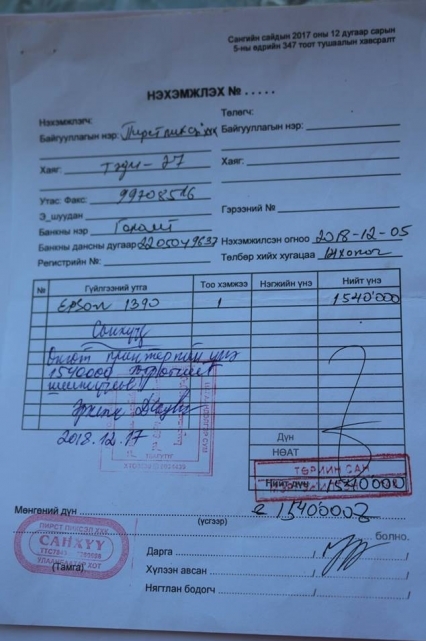 Сангийн сайдын 2017 оны 12 дугаар сарын
5-ны өдрийн 347 тоот тушаалын хавсралт
НЭХЭМЖЛЭХ № .....
Нэхэмжлэгч:
Төлөгч:
Байгууллагын нэр: Пирст пиксэл ххк
Байгууллагын нэр:
Хаяг: ТЭДҮ-27
Хаяг:
Утас Факс: 99708516
Э_шуудан
Гэрээний №
Банкны нэр Голомт
Банкны дансны дугаар 2205049637
Нэхэмжилсэн огноо 2018-12-05
Регистрийн №:
Төлбөр хийх хугацаа
№ Гүйлгээний утга Тоо хэмжээ Нэгжийн үнэ Нийт үнэ
EPSON 1390 1 1540'000
Санхүү
принтерийн үнэ
1540000
2018.12.17
Дүн
НӨАТ
ТӨРИЙН САН
Нийт дүн 1540000
Мөнгөний дүн 1540000₮
(үсгээр)
болно.
ПИРСТ ПИКСЭЛ ХХК
САНХҮҮ
УЛААНБААТАР ХОТ
(Тамга)
Дарга
Хүлээн авсан
Нягтлан бодогч